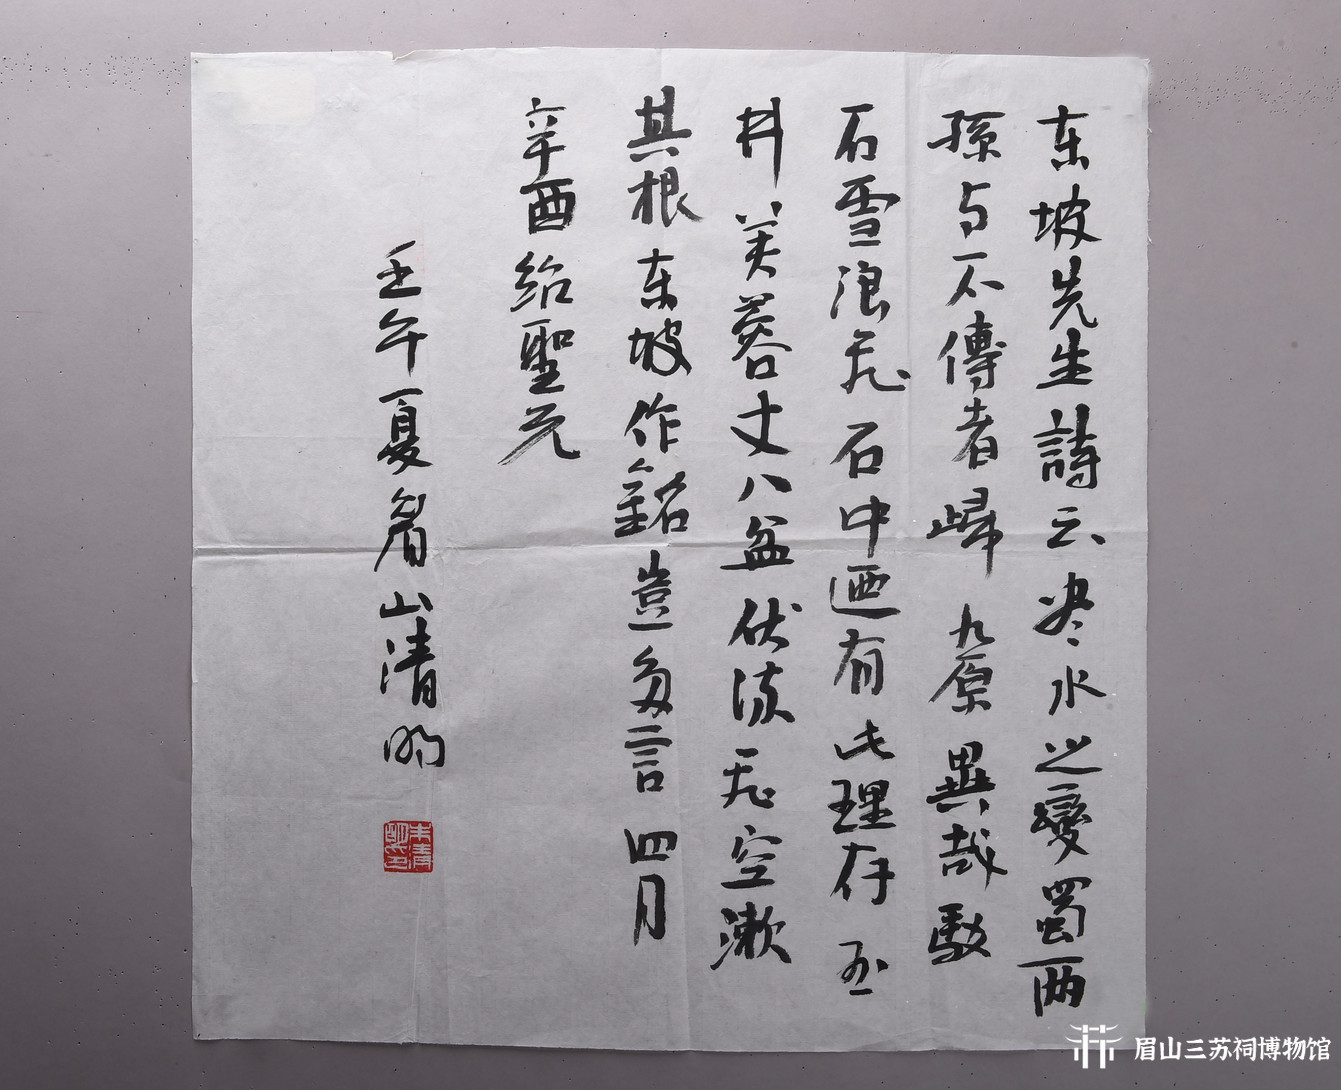 东坡先生詩云尽水之變蜀两
孫与不傳者歸九原異哉駁
石雪浪飛石中迺有此理存玉
井芙蓉丈八盆伏流飛空漱
其根东坡作銘豈多言四月
辛酉绍聖元
壬午夏眉山清明
朱清明印
眉山三苏祠博物馆